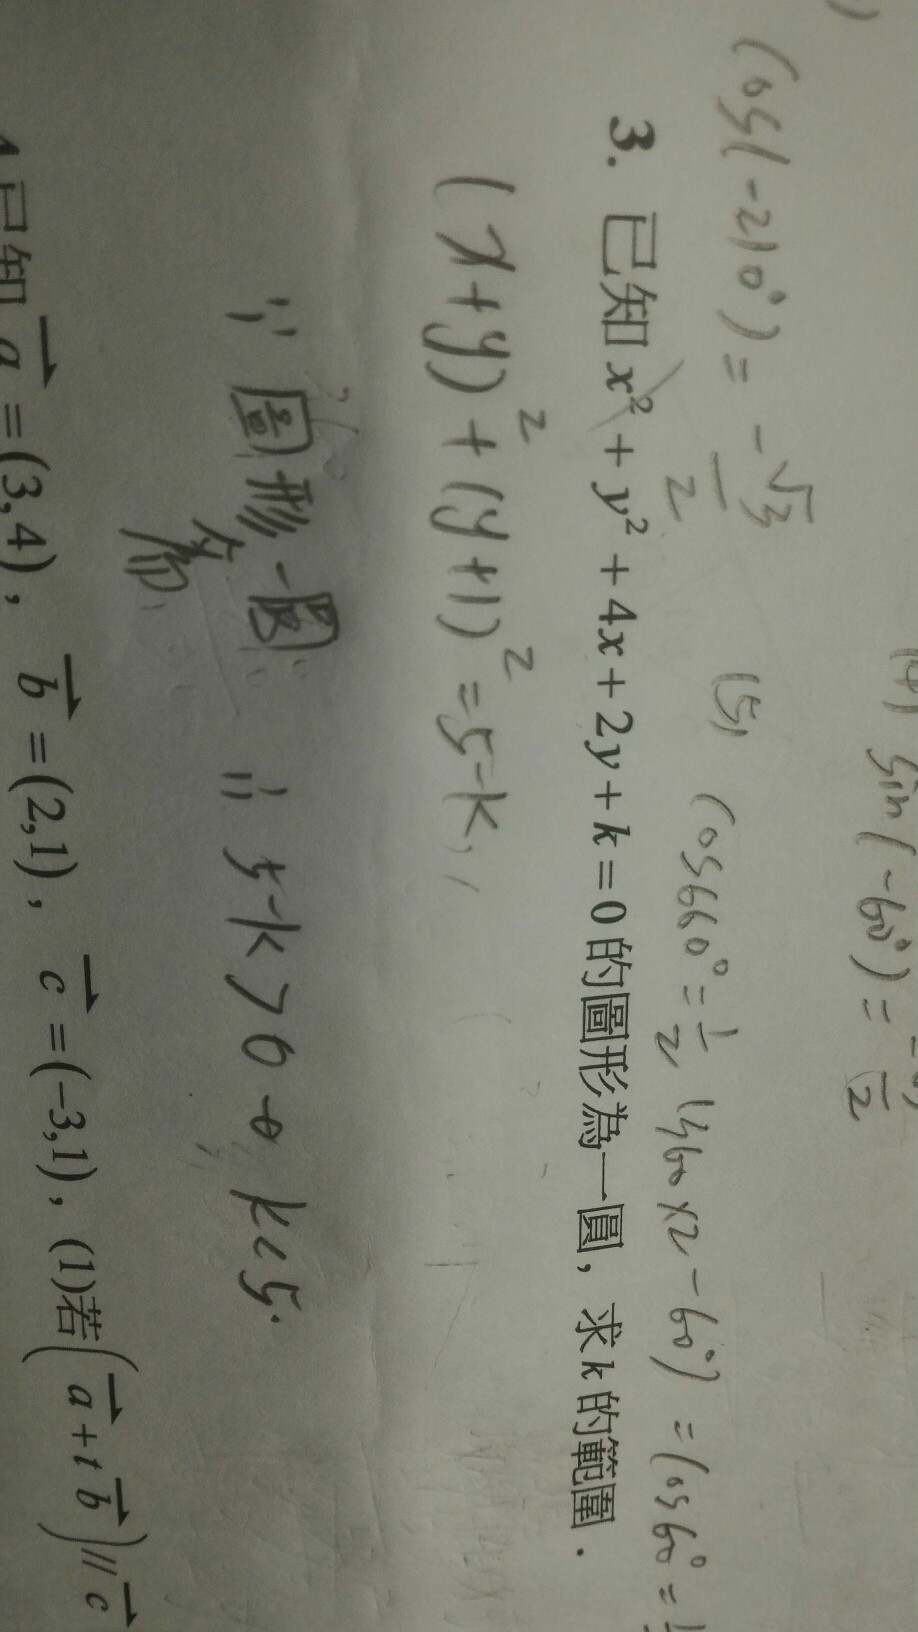 (4) sin(-60°) =
cos(-210°) = -√3/2
(5) cos660° = 1/2 (360×2-60°) = cos60° =
3. 已知 x² + y² + 4x + 2y + k = 0 的圖形為一圓，求 k 的範圍．
(x+y)² + (y+1)² = 5-k,
∵ 圖形為一圓 ∴ 5-k > 0 → k < 5.
已知 a = (3,4)，b = (2,1)，c = (-3,1)，(1)若(a + t b) // c